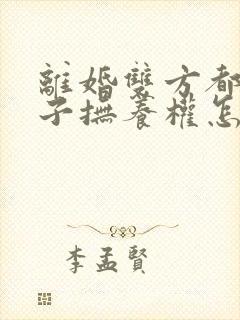 離婚雙方都
子撫養權怎
李孟賢